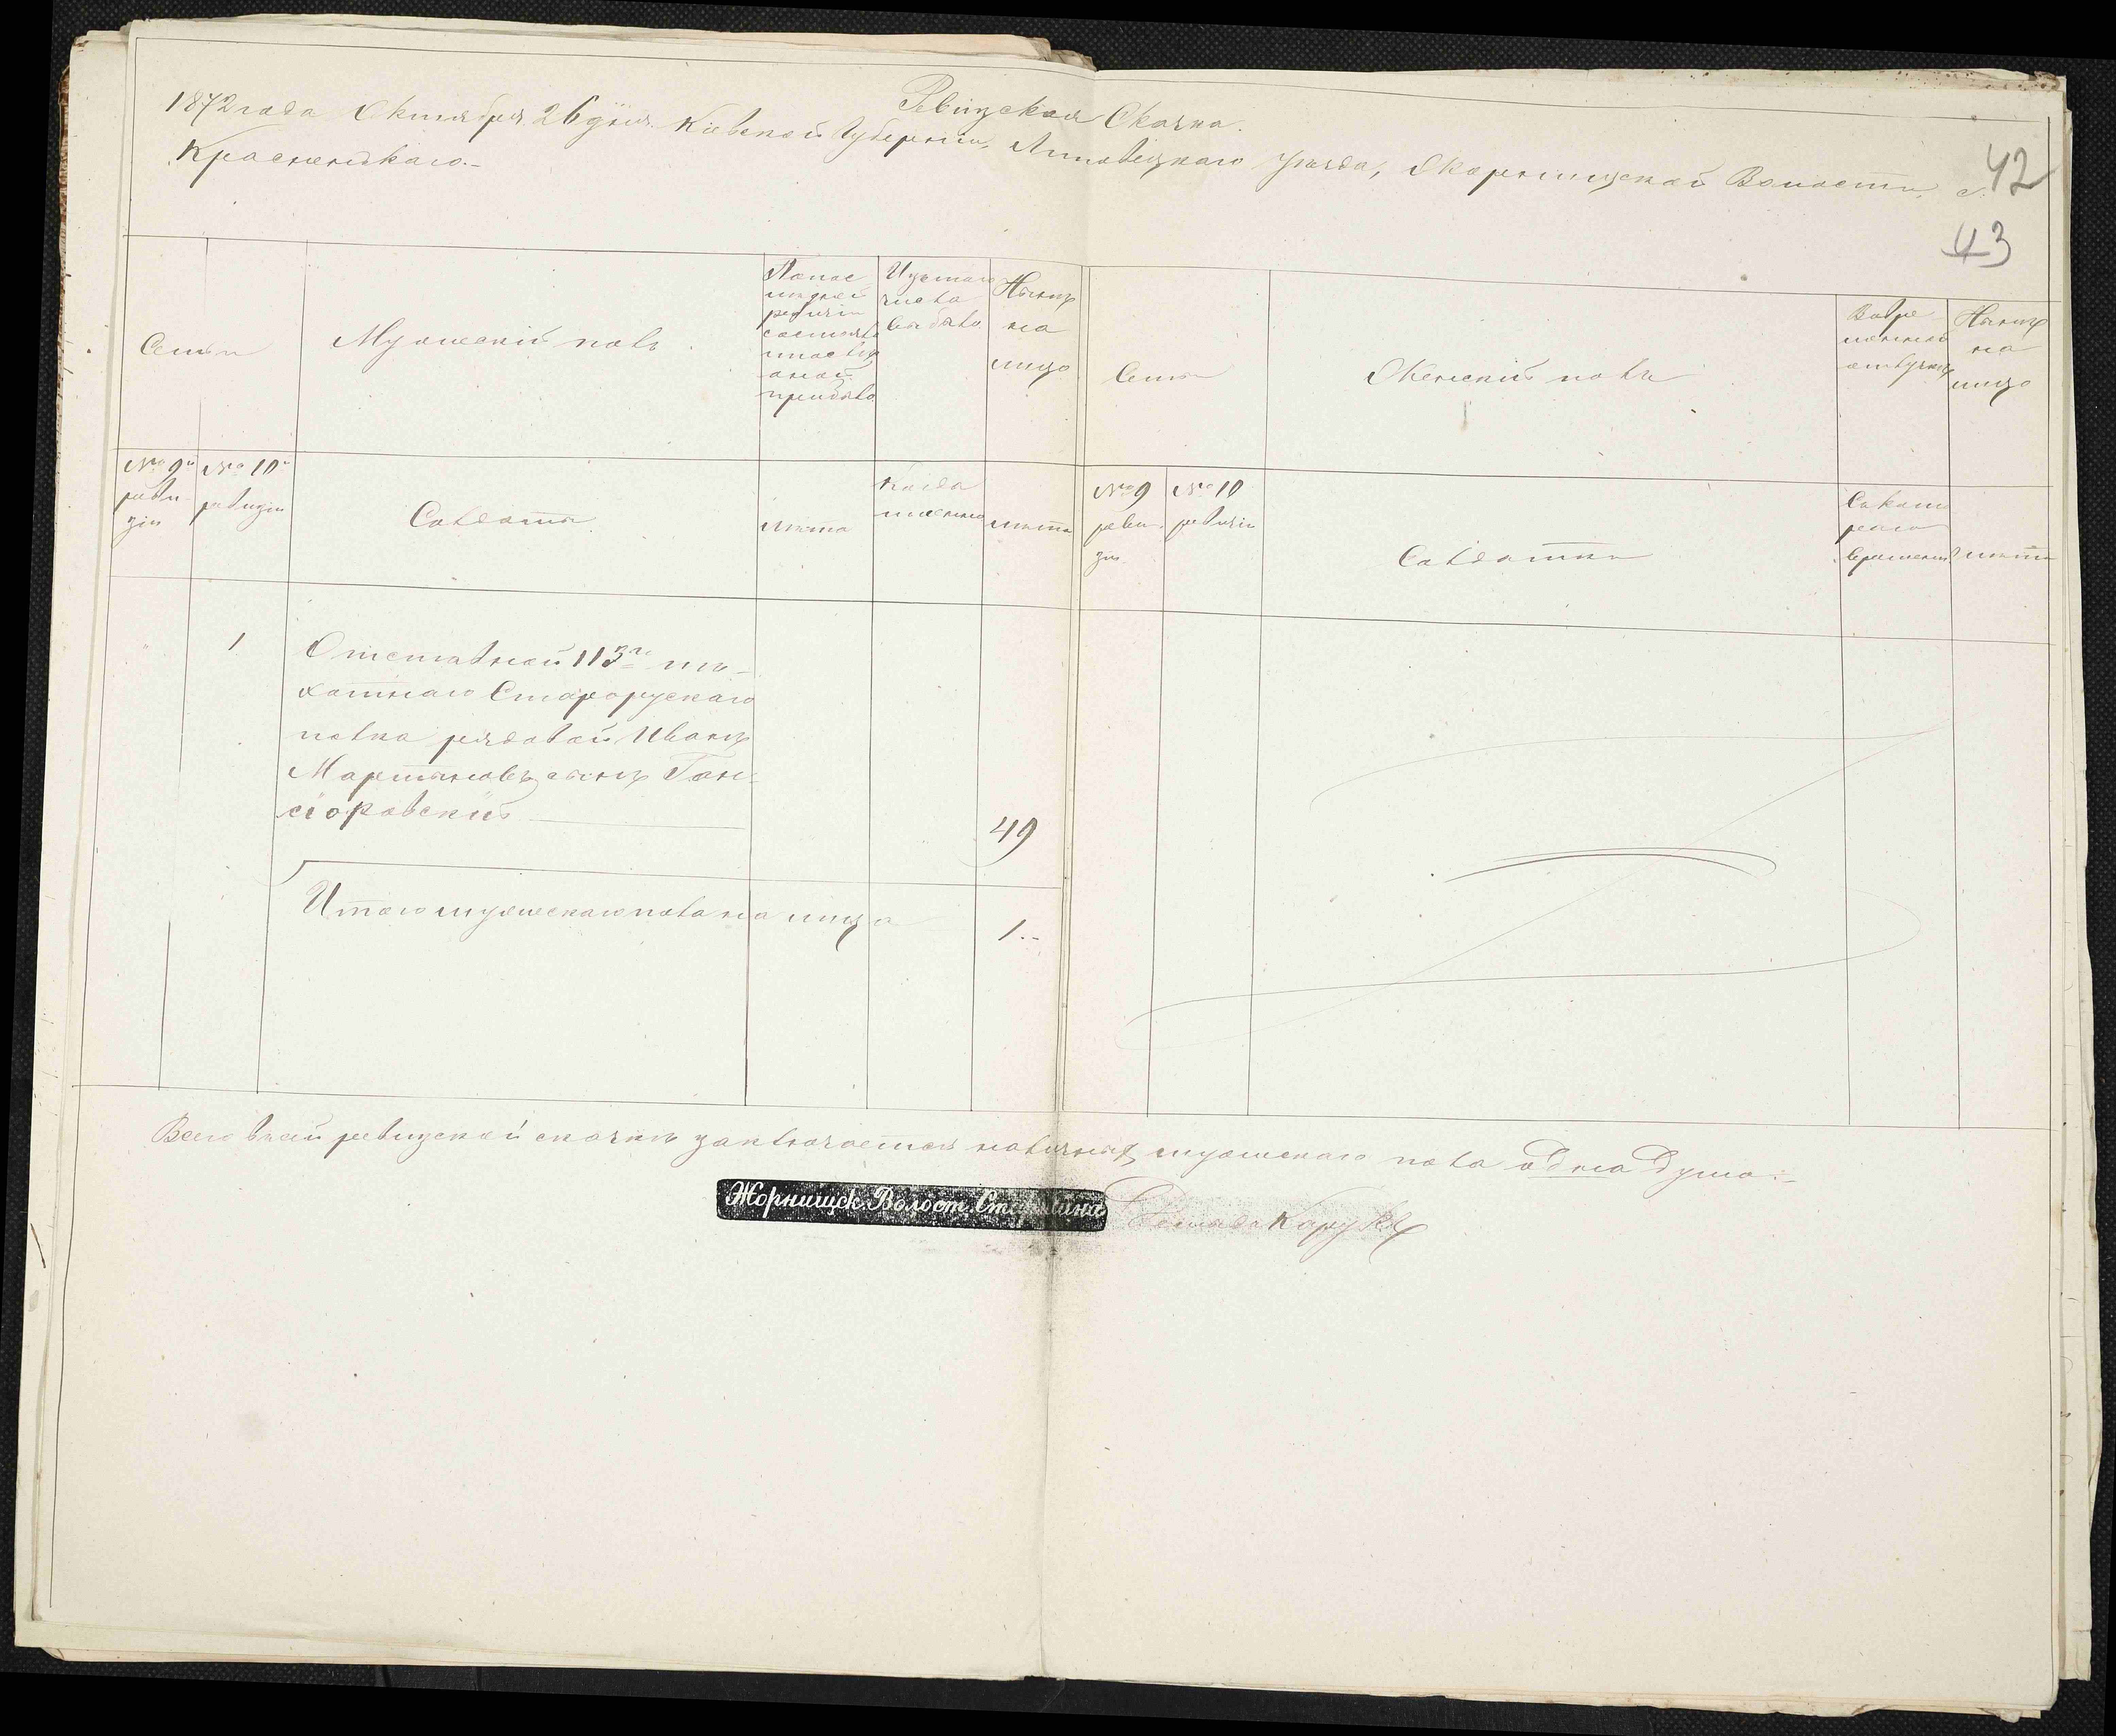 Ревизская Сказка.
1872 года Октября 26 дня. Кіевской Губерніи, Липовецкаго уѣзда, Жорнищской Волости, с.
Красненькаго.-
42
43
Семьи
Мужескій полъ.
По пос
лѣдней
ревизіи
состояло
и послѣ
оной
прибыло
Изъ того
числа
выбыло
Нынѣ
на
лицо
Семьи
Женскій полъ
Во вре
менной
отлучкѣ
Нынѣ
на
лицо
№ 9й
реви-
зіи
№ 10й
ревизіи
Солдаты
Лѣта
Когда
именно
Лѣта
№ 9
реви-
зіи
№ 10
ревизіи
Солдатки
Съ кото
раго
времени
Лѣта
" 1 Отставной 113го пѣ-
хотнаго Старорускаго
полка рядовой Иванъ
Мартыновъ сынъ Ган-
сіоровскій
49
Итого мужескаго пола на лицо 1.-
Всего въ сей ревизской сказкѣ заключается наличныхъ мужескаго пола одна душа.-
Жорнищск. Волост. Старшина